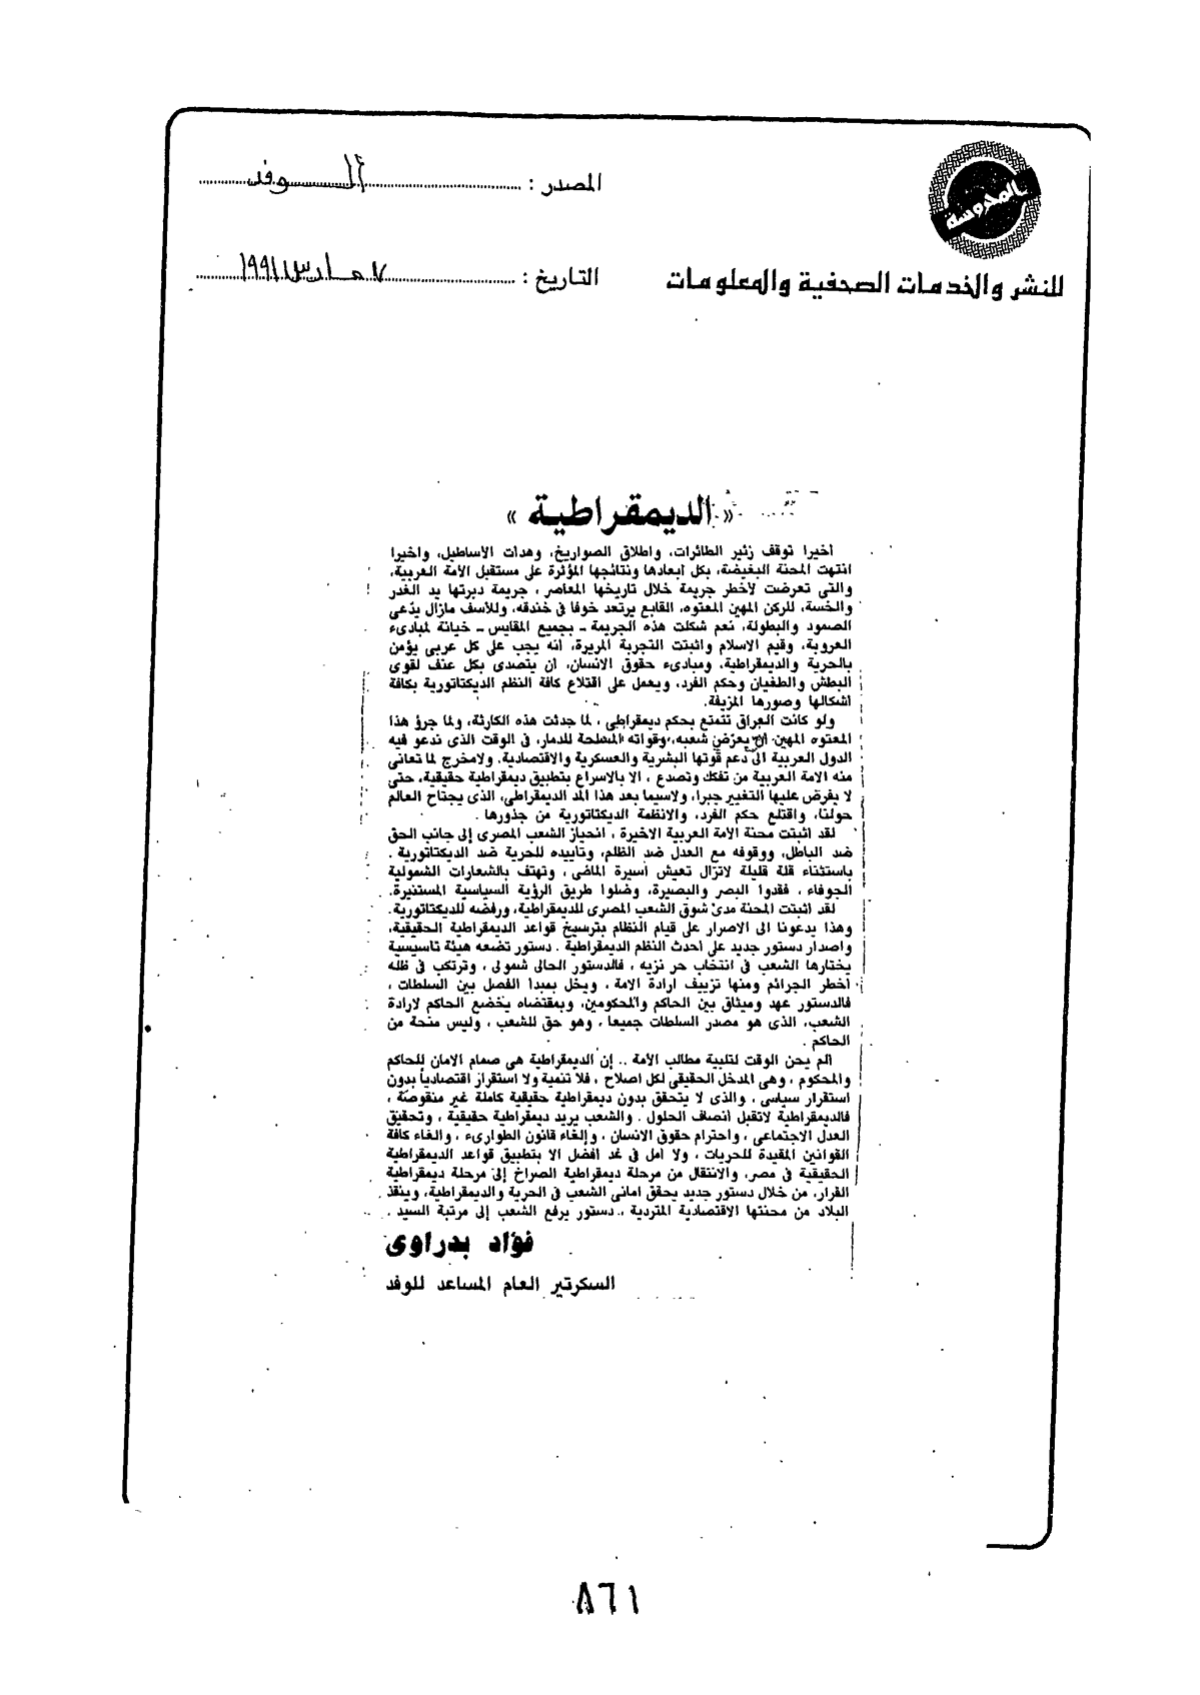 المحروسة
للنشر والخدمات الصحفية والمعلومات
المصدر : الوفد
التاريخ : ٧ مارس ١٩٩١
« الديمقراطية »
أخيرا توقف زئير الطائرات، واطلاق الصواريخ، وهدأت الأساطيل، واخيرا
انتهت المحنة البغيضة، بكل أبعادها ونتائجها المؤثرة على مستقبل الأمة العربية،
والتى تعرضت لأخطر جريمة خلال تاريخها المعاصر، جريمة دبرتها يد الغدر
والخسة، للركن المهين المعتوه، القابع يرتعد خوفا فى خندقه، وللأسف مازال يدّعى
الصمود والبطولة، نعم شكلت هذه الجريمة - بجميع المقايس - خيانة لمبادىء
العروبة، وقيم الاسلام واثبتت التجربة المريرة، أنه يجب على كل عربى يؤمن
بالحرية والديمقراطية، ومبادىء حقوق الانسان، أن يتصدى بكل عنف لقوى
البطش والطغيان وحكم الفرد، ويعمل على اقتلاع كافة النظم الديكتاتورية بكافة
اشكالها وصورها المزيفة.
ولو كانت العراق تتمتع بحكم ديمقراطى ، لما حدثت هذه الكارثة، ولما جرؤ هذا
المعتوه المهين أن يعرض شعبه، وقواته المسلحة للدمار، فى الوقت الذى ندعو فيه
الدول العربية الى دعم قوتها البشرية والعسكرية والاقتصادية. ولامخرج لما تعانى
منه الامة العربية من تفكك وتصدع ، الا بالاسراع بتطبيق ديمقراطية حقيقية، حتى
لا يفرض عليها التغيير جبرا، ولاسيما بعد هذا المد الديمقراطى، الذى يجتاح العالم
حولنا، واقتلع حكم الفرد، والانظمة الديكتاتورية من جذورها .
لقد اثبتت محنة الامة العربية الاخيرة ، انحياز الشعب المصرى إلى جانب الحق
ضد الباطل، ووقوفه مع العدل ضد الظلم، وتأييده للحرية ضد الديكتاتورية .
باستثناء قلة قليلة لاتزال تعيش أسيرة الماضى ، وتهتف بالشعارات الشمولية
الجوفاء ، فقدوا البصر والبصيرة، وضلوا طريق الرؤية السياسية المستنيرة.
لقد اثبتت المحنة مدى شوق الشعب المصرى للديمقراطية، ورفضه للديكتاتورية.
وهذا يدعونا الى الاصرار على قيام النظام بترسيخ قواعد الديمقراطية الحقيقية،
واصدار دستور جديد على احدث النظم الديمقراطية . دستور تضعه هيئة تأسيسية
يختارها الشعب فى انتخاب حر نزيه ، فالدستور الحالى شمولى ، وترتكب فى ظله
أخطر الجرائم ومنها تزييف ارادة الامة ، ويخل بمبدأ الفصل بين السلطات ،
فالدستور عهد وميثاق بين الحاكم والمحكومين، وبمقتضاه يخضع الحاكم لارادة
الشعب، الذى هو مصدر السلطات جميعا ، وهو حق للشعب ، وليس منحة من
الحاكم .
ألم يحن الوقت لتلبية مطالب الأمة .. إن الديمقراطية هى صمام الامان للحاكم
والمحكوم ، وهى المدخل الحقيقى لكل اصلاح ، فلا تنمية ولا استقرار اقتصادياً بدون
استقرار سياسى ، والذى لا يتحقق بدون ديمقراطية حقيقية كاملة غير منقوصة ،
فالديمقراطية لاتقبل أنصاف الحلول . والشعب يريد ديمقراطية حقيقية ، وتحقيق
العدل الاجتماعى ، واحترام حقوق الانسان ، وإلغاء قانون الطوارىء ، والغاء كافة
القوانين المقيدة للحريات ، ولا أمل فى غد افضل الا بتطبيق قواعد الديمقراطية
الحقيقية فى مصر، والانتقال من مرحلة ديمقراطية الصراخ إلى مرحلة ديمقراطية
القرار، من خلال دستور جديد يحقق أمانى الشعب فى الحرية والديمقراطية، وينقذ
البلاد من محنتها الاقتصادية المتردية .. دستور يرفع الشعب إلى مرتبة السيد .
فؤاد بدراوى
السكرتير العام المساعد للوفد
٨٦١